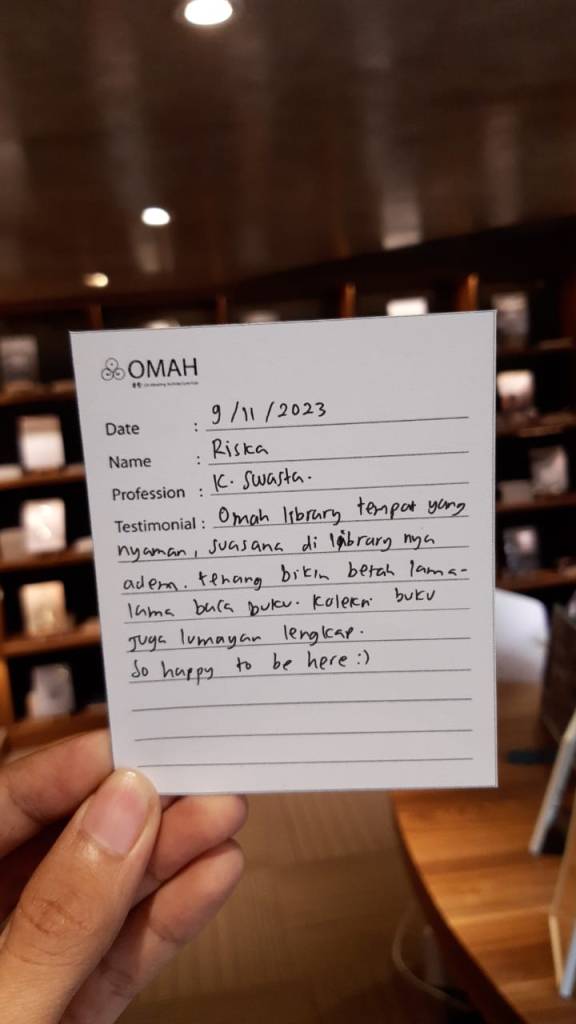 OMAH
Date : 9/11/2023
Name : Riska
Profession : K. Swasta.
Testimonial : Omah library tempat yang
nyaman, suasana di library nya
adem. tenang bikin betah lama-
lama baca buku. Koleksi buku
juga lumayan lengkap.
So happy to be here :)